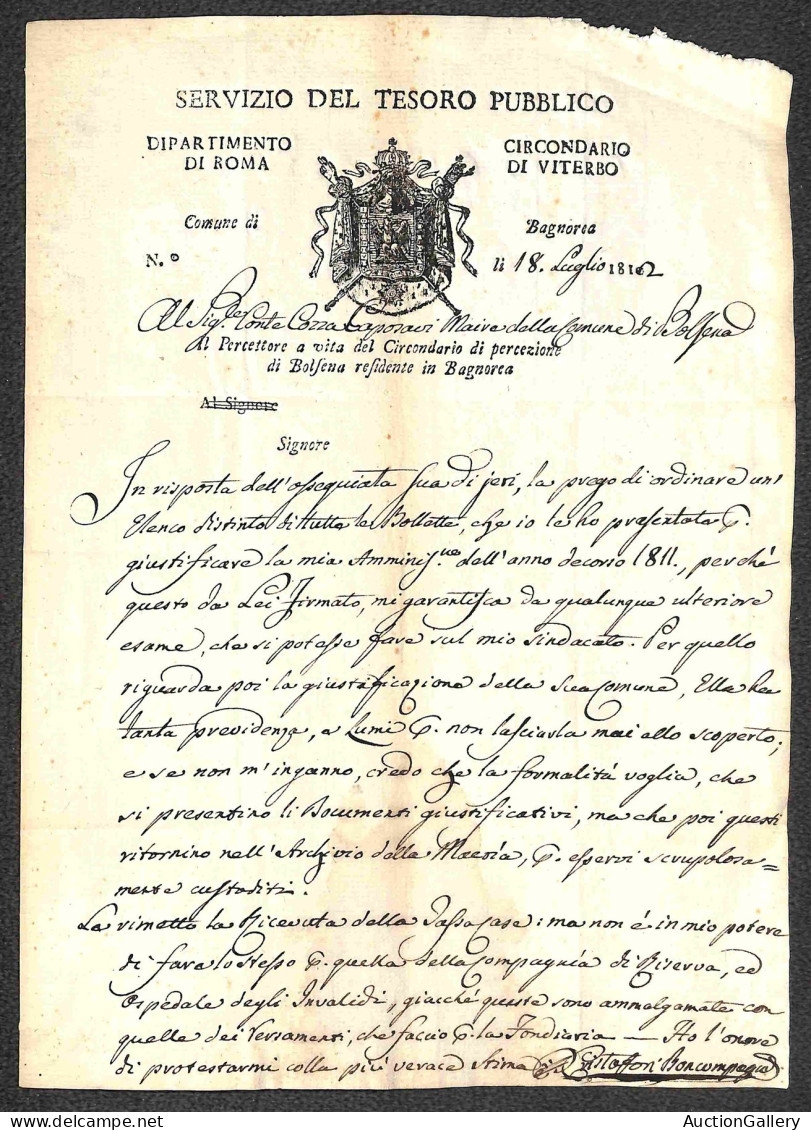 SERVIZIO DEL TESORO PUBBLICO
DIPARTIMENTO DI ROMA
CIRCONDARIO DI VITERBO
Comune di
Bagnorea
N.º
li 18. Luglio 1812
Al Sig.re Conte Cozza Caposavi Maire della Comune di Bolsena
Il Percettore a vita del Circondario di percezione
di Bolsena residente in Bagnorea
Al Signore
Signore
In risposta dell'ossequiata sua di jeri, la prego di ordinare un'
Elenco distinto di tutte le Bollette, che io le ho presentate p.
giustificare la mia Amminis.ne dell'anno decorso 1811., perché
questo da Lei firmato, mi garantisca da qualunque ulteriore
esame, che si potesse fare sul mio sindacato. Per quello
riguarda poi la giustificazione della sua Comune, Ella ha
tanta previdenza, e Lumi p. non lasciarla mai allo scoperto;
e se non m'inganno, credo che la formalità voglia, che
si presentino li Documenti giustificativi, ma che poi questi
ritornino nell'Archivio della Maeria, p. esservi scrupolosa=
mente custoditi.
Le rimetto la Ricevuta della Tassa Case: ma non é in mio potere
di fare lo stesso p. quella della Compagnia di Riserva, ed
Ospedale degli Invalidi, giacché queste sono ammalgamate con
quelle dei Versamenti, che faccio p. la Fondiaria — Ho l'onore
di protestarmi colla più verace stima Boncompagni
AuctionGallery